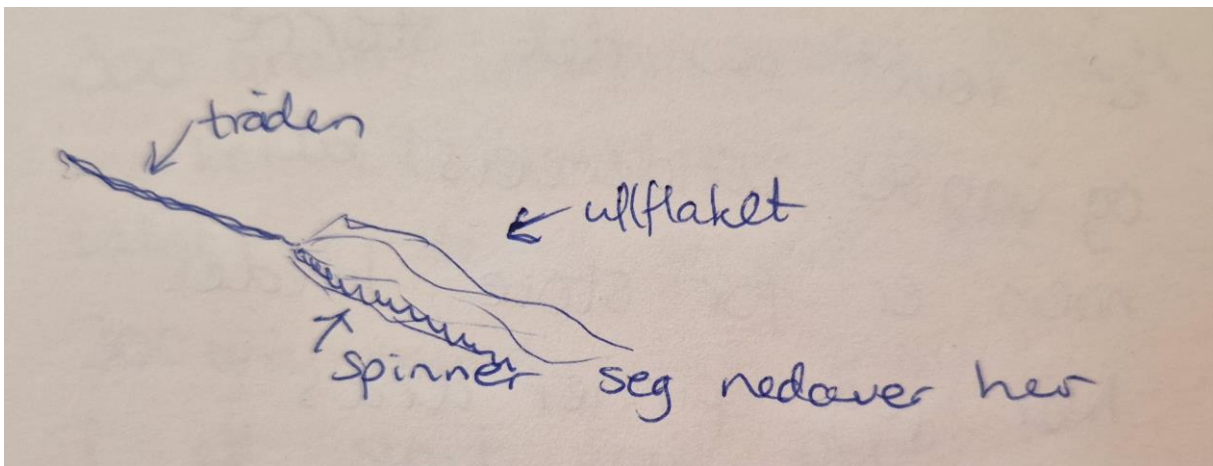 tråden
ullflaket
spinner seg nedover her